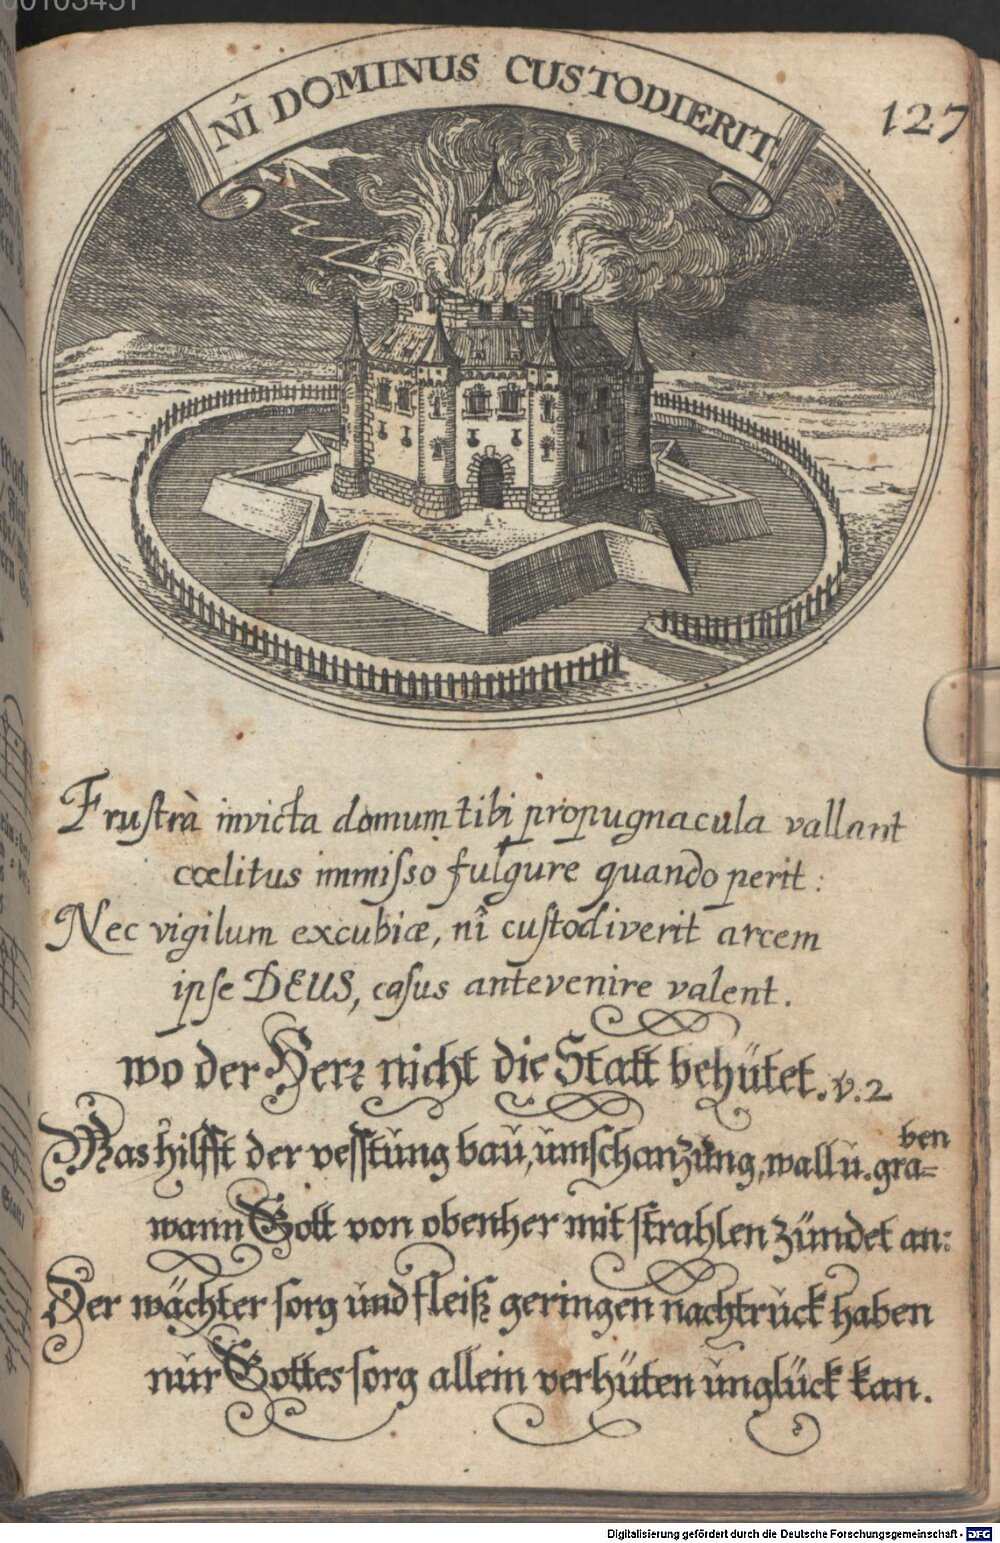 NÎ DOMINUS CUSTODIERIT.
127
Frustrà invicta domum tibi propugnacula vallant
cœlitus immisso fulgure quando perit:
Nec vigilum excubiæ, nî custodiverit arcem
ipse DEUS, casus antevenire valent.
wo der Herr nicht die Statt behütet. v. 2
Was hilfft der vesstung bau, umschanzung, wall u. gra=
ben
wann Gott von obenher mit strahlen zündet an:
Der wächter sorg und fleiß geringen nachtruck haben
nur Gottes sorg allein verhüten unglück kan.
Digitalisierung gefördert durch die Deutsche Forschungsgemeinschaft - DFG